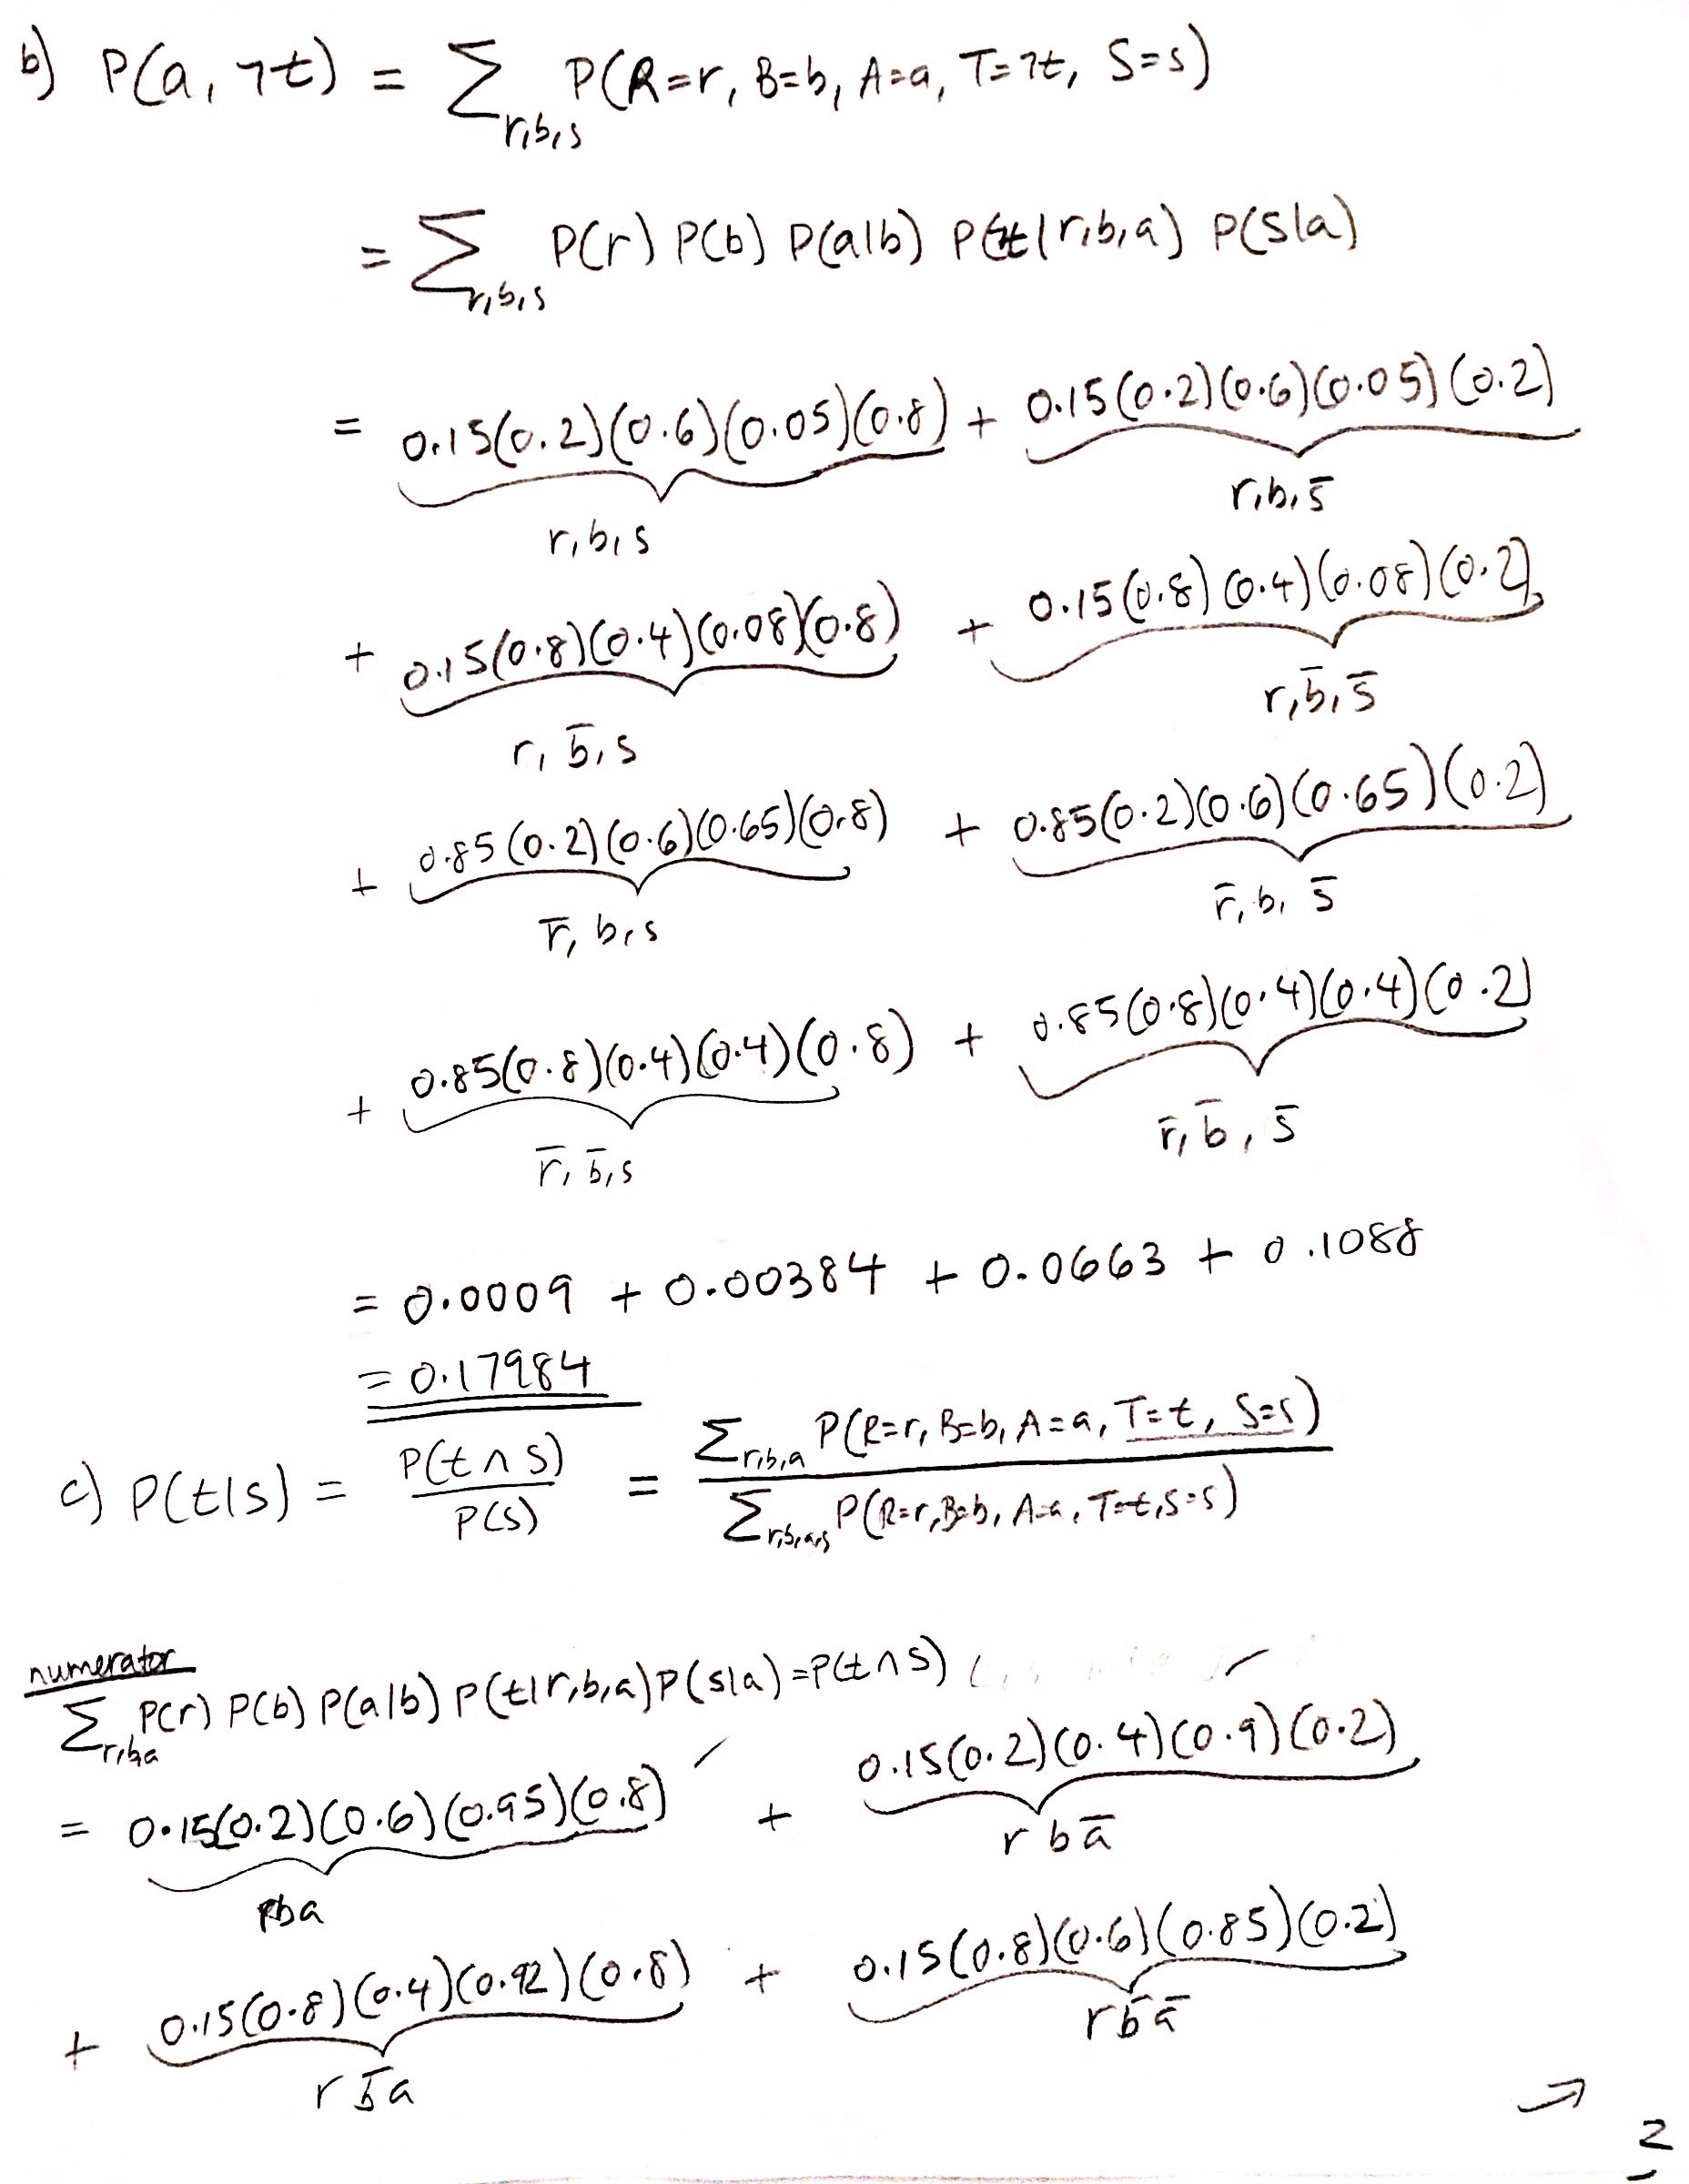 b) P(a, ¬t) = Σ_{r,b,s} P(R=r, B=b, A=a, T=¬t, S=s)
= Σ_{r,b,s} P(r) P(b) P(a|b) P(¬t|r,b,a) P(s|a)
= 0.15(0.2)(0.6)(0.05)(0.8) + 0.15(0.2)(0.6)(0.05)(0.2)
r,b,s r,b,s̅
+ 0.15(0.8)(0.4)(0.08)(0.8) + 0.15(0.8)(0.4)(0.08)(0.2)
r,b̅,s r,b̅,s̅
+ 0.85(0.2)(0.6)(0.65)(0.8) + 0.85(0.2)(0.6)(0.65)(0.2)
r̅,b,s r̅,b,s̅
+ 0.85(0.8)(0.4)(0.4)(0.8) + 0.85(0.8)(0.4)(0.4)(0.2)
r̅,b̅,s r̅,b̅,s̅
= 0.0009 + 0.00384 + 0.0663 + 0.1088
= 0.17984
c) P(t|s) = P(t∩s) / P(s) = Σ_{r,b,a} P(R=r, B=b, A=a, T=t, S=s) / Σ_{r,b,a,s} P(R=r, B=b, A=a, T=t, S=s)
numerator
Σ_{r,b,a} P(r) P(b) P(a|b) P(t|r,b,a) P(s|a) = P(t∩s)
= 0.15(0.2)(0.6)(0.95)(0.8) ✓ + 0.15(0.2)(0.4)(0.9)(0.2) ✓
rba r b a̅
+ 0.15(0.8)(0.4)(0.92)(0.8) + 0.15(0.8)(0.6)(0.85)(0.2)
r b̅ a r b̅ a̅
→
2